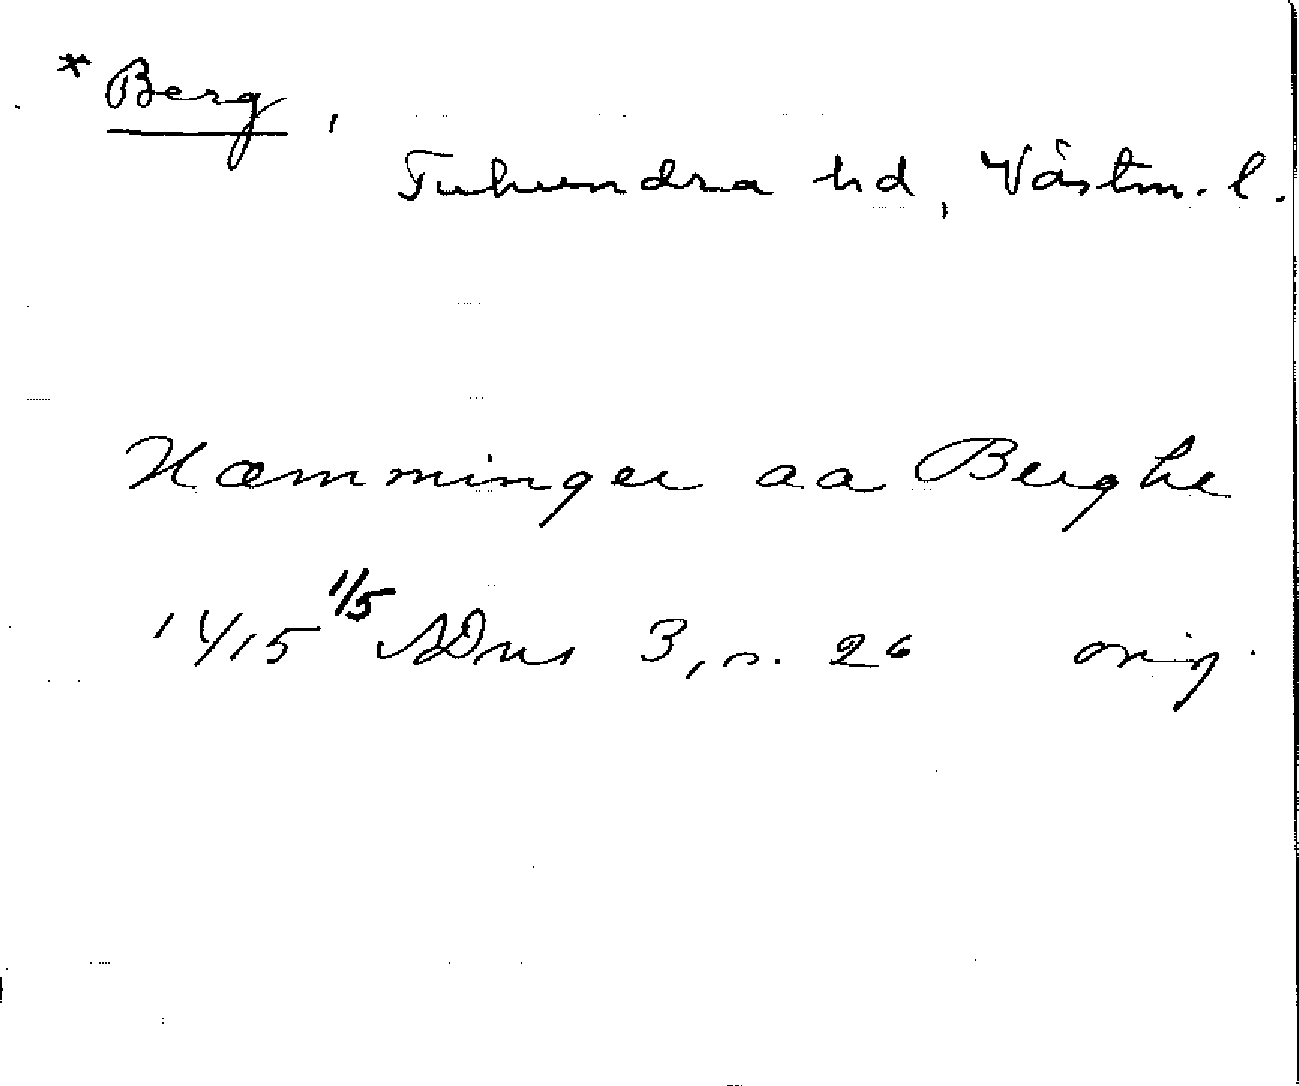 * Berg,
Tuhundra hd, Västm. l.
Hæmminger aa Berghe
1415 1/5 SDns 3, s. 26 orig.